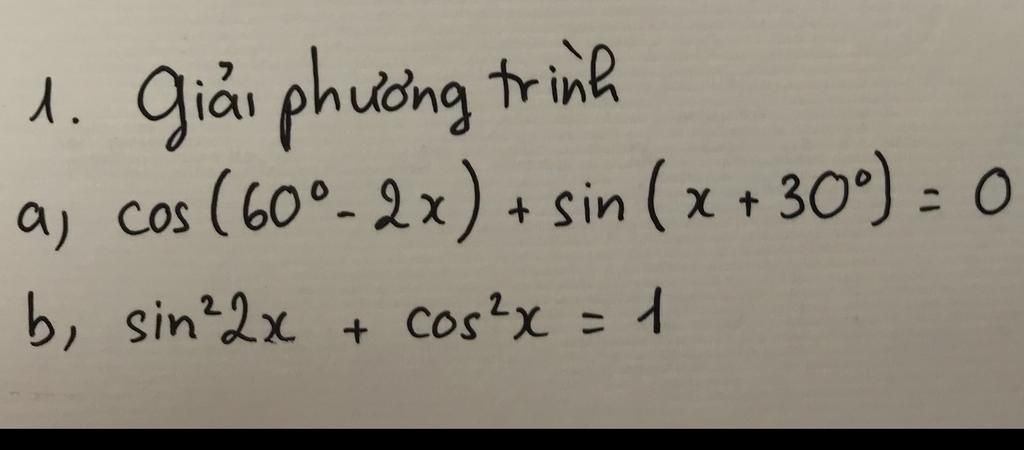 1. Giải phương trình
a, cos(60° - 2x) + sin(x + 30°) = 0
b, sin²2x + cos²x = 1